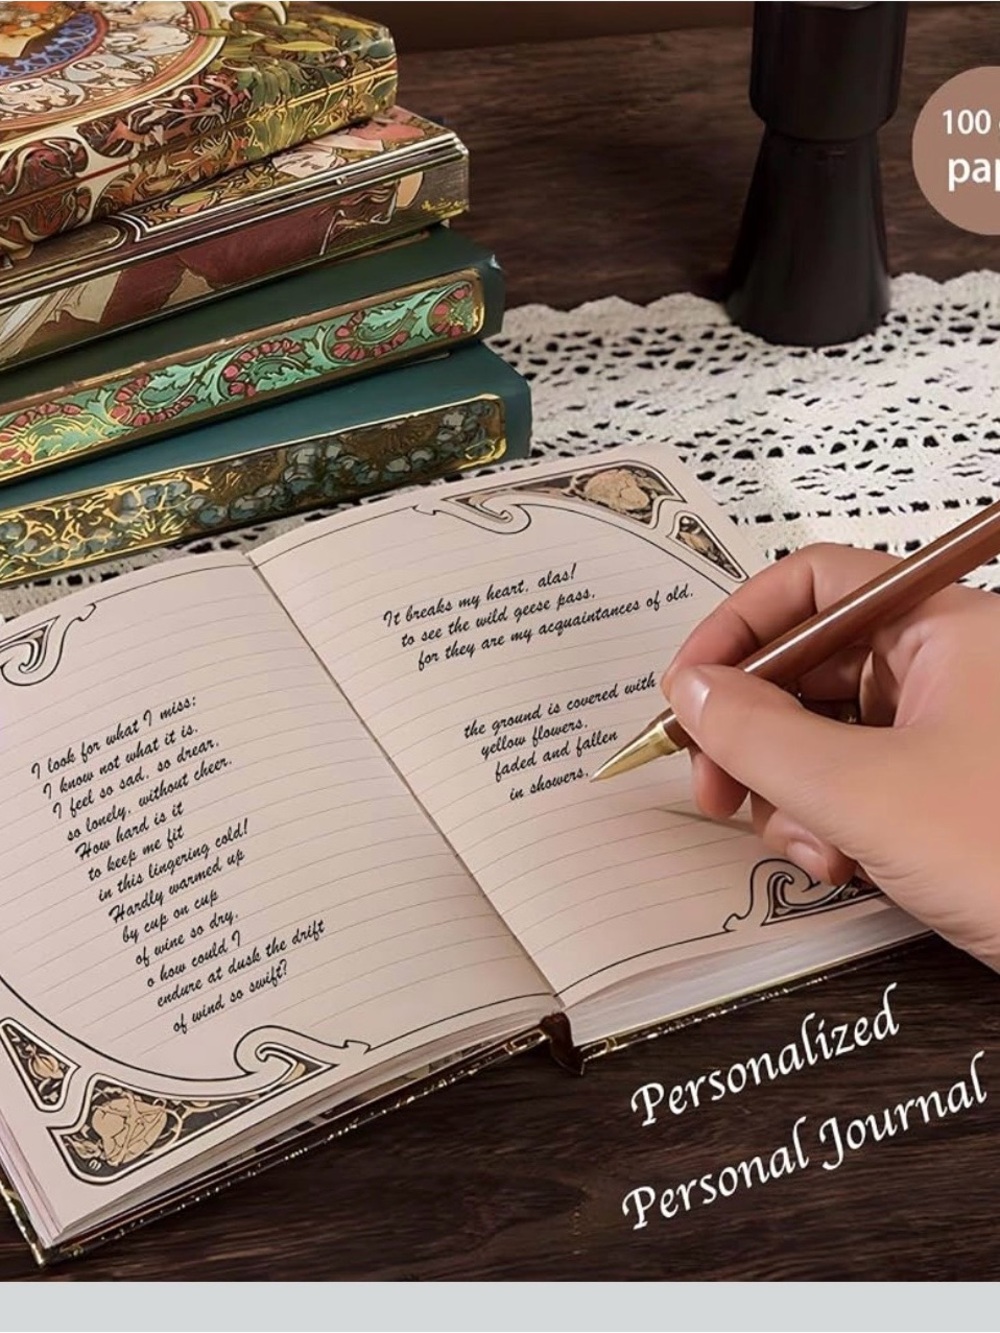 100
I look for what I miss;
I know not what it is.
I feel so sad, so drear,
so lonely, without cheer.
How hard is it
to keep me fit
in this lingering cold!
Hardly warmed up
by cup on cup
of wine so dry.
o how could I
endure at dusk the drift
of wind so swift?
It breaks my heart, alas!
to see the wild geese pass,
for they are my acquaintances of old.
the ground is covered with
yellow flowers.
faded and fallen
in showers.
Personalized
Personal Journal